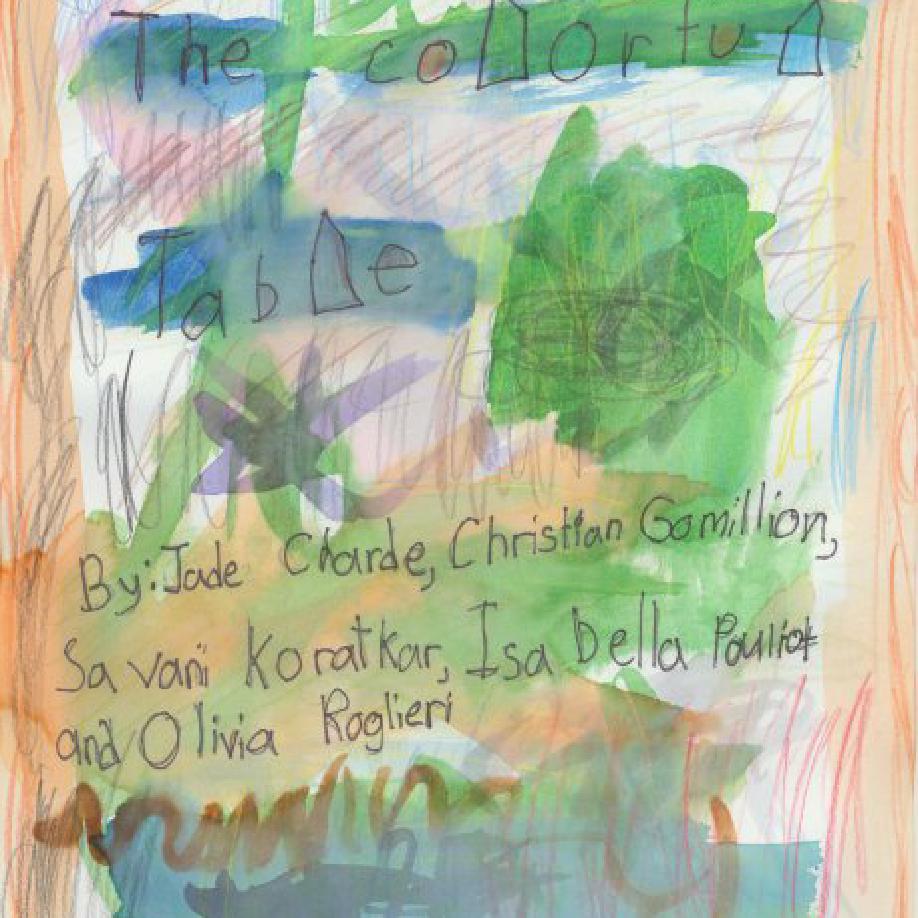 The colorful
Table
By: Jade Charde, Christian Gomillion,
Savani Koratkar, Isabella Pouliot
and Olivia Roglieri